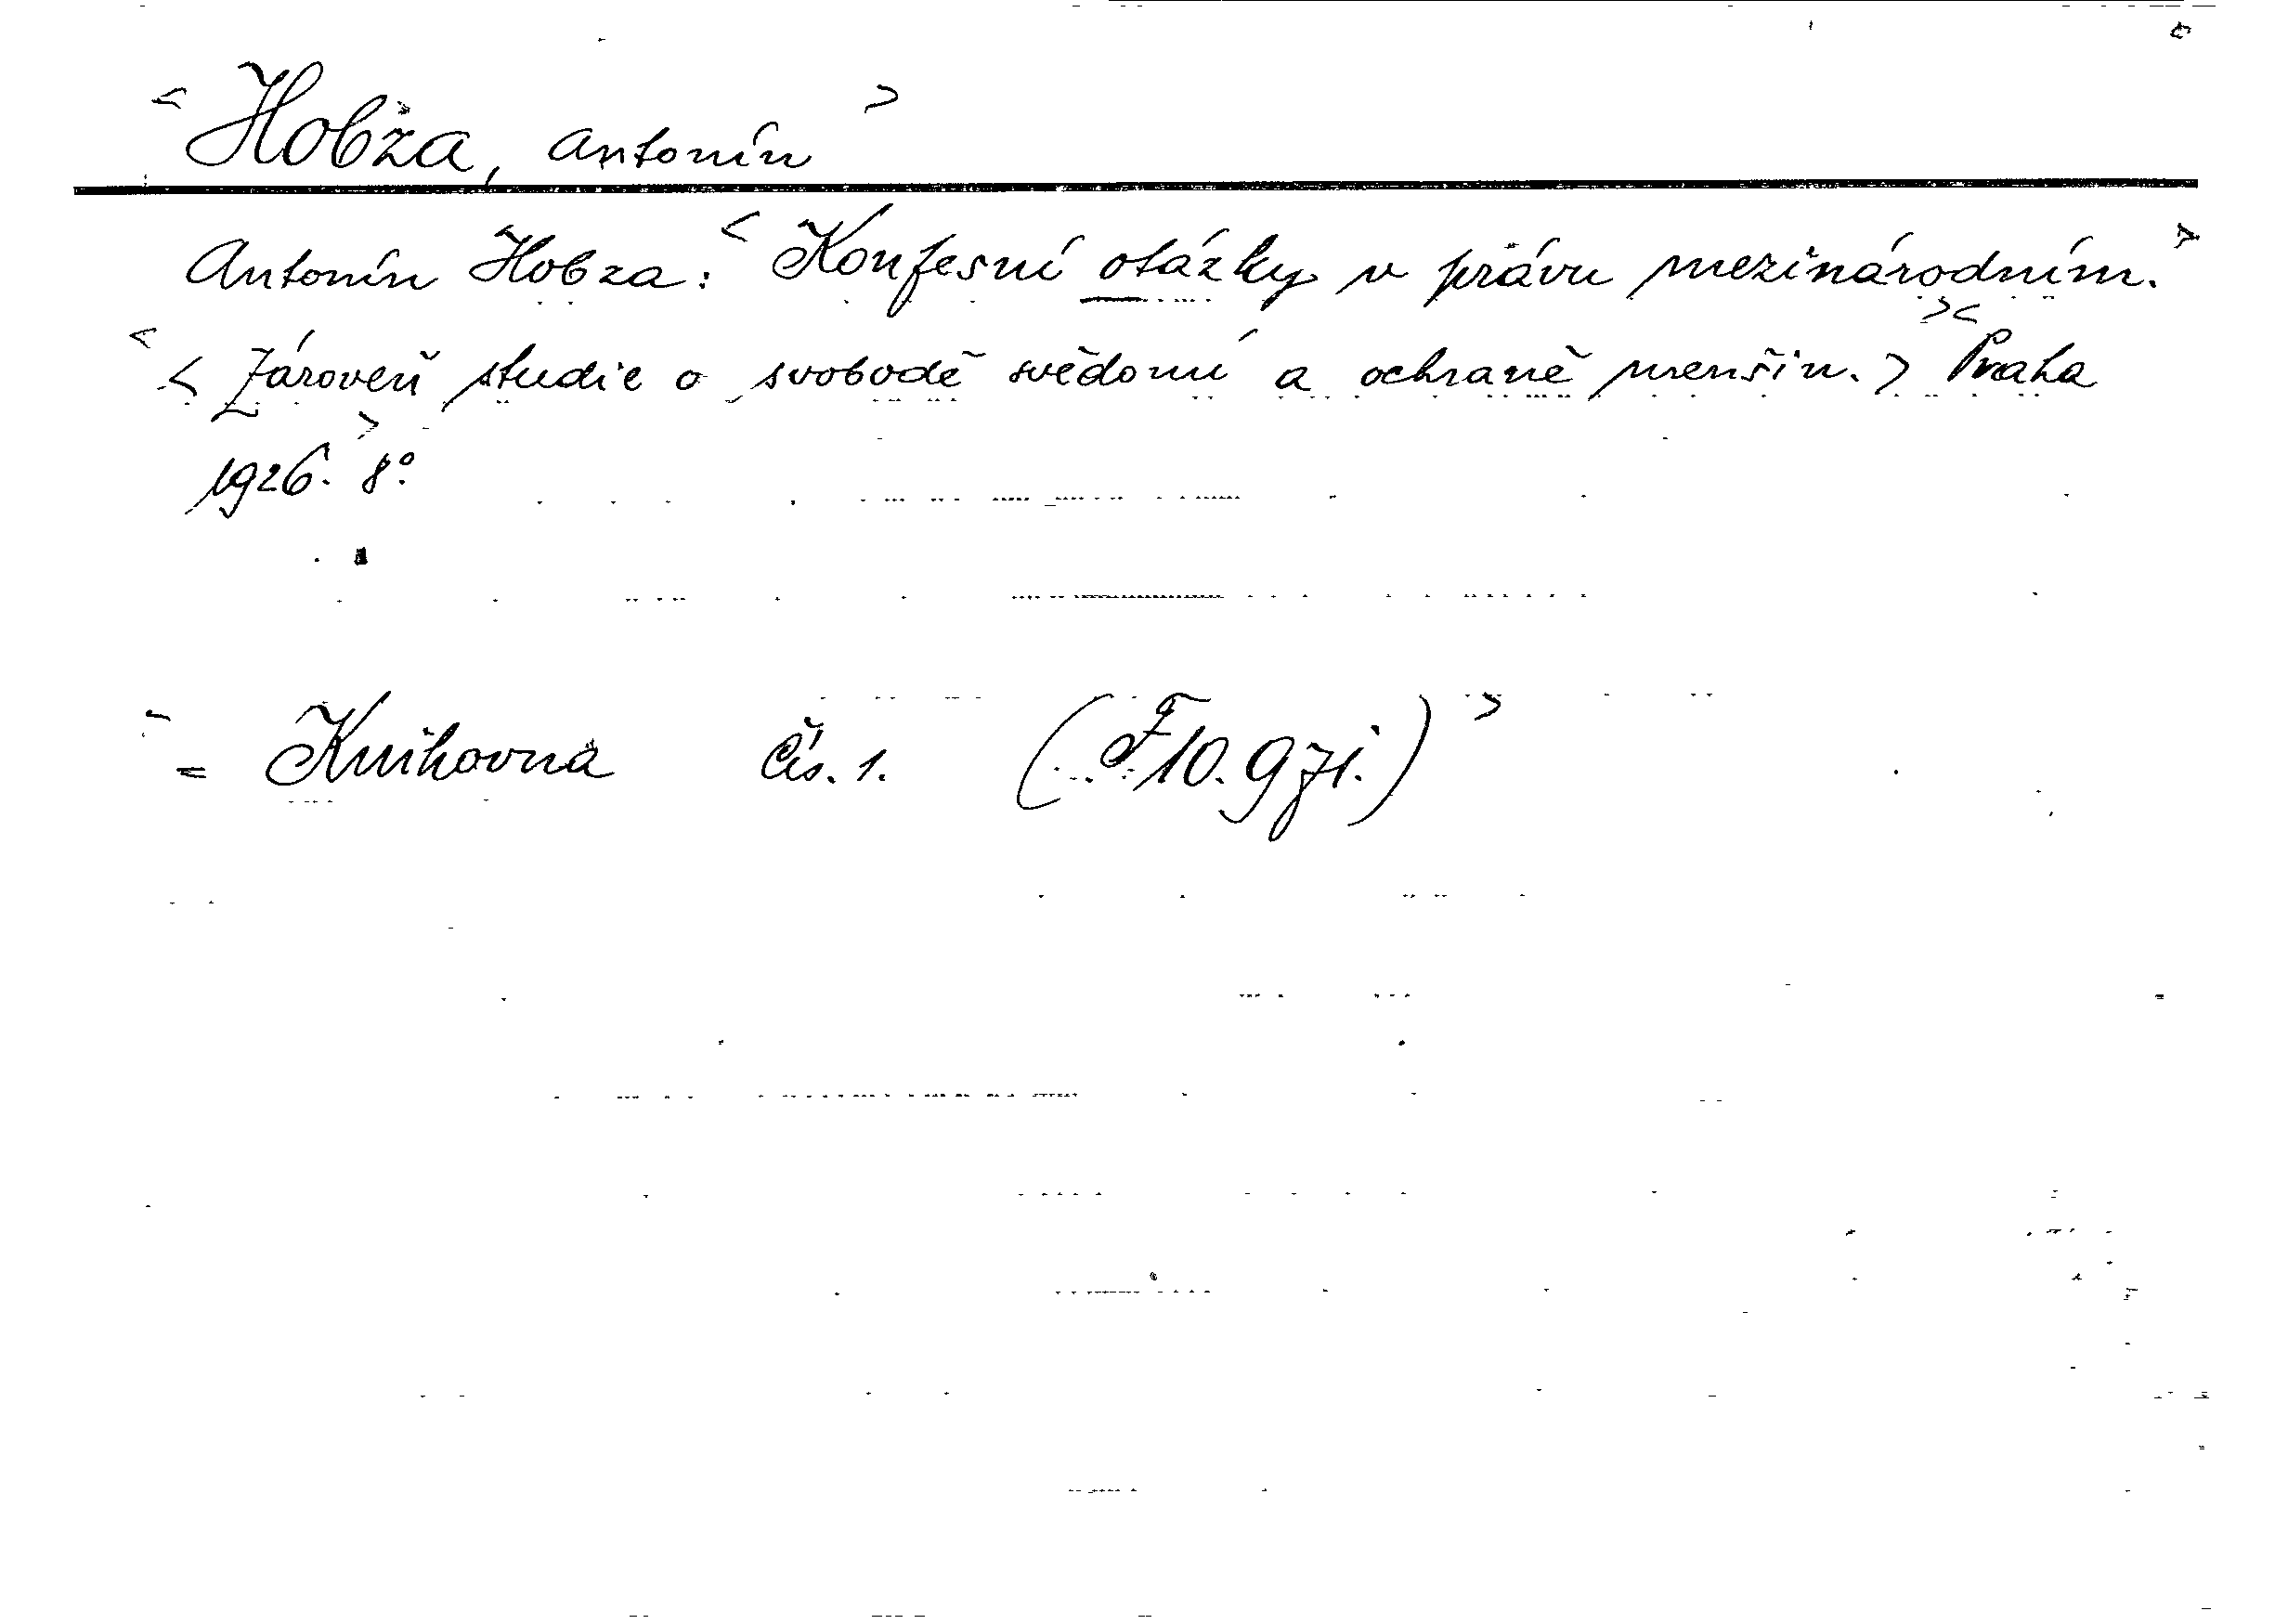 < Hobza, Antonín >
Antonín Hobza: < Konfesní otázky v právu mezinárodním. >
< < Zároveň studie o svobodě svědomí a ochraně menšin. > > < Praha
1926. > 8°.
= Knihovna čís. 1. ( F 10. ) >